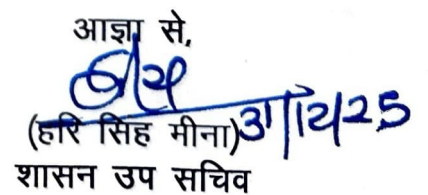 आज्ञा से,
(हरि सिंह मीना)
शासन उप सचिव